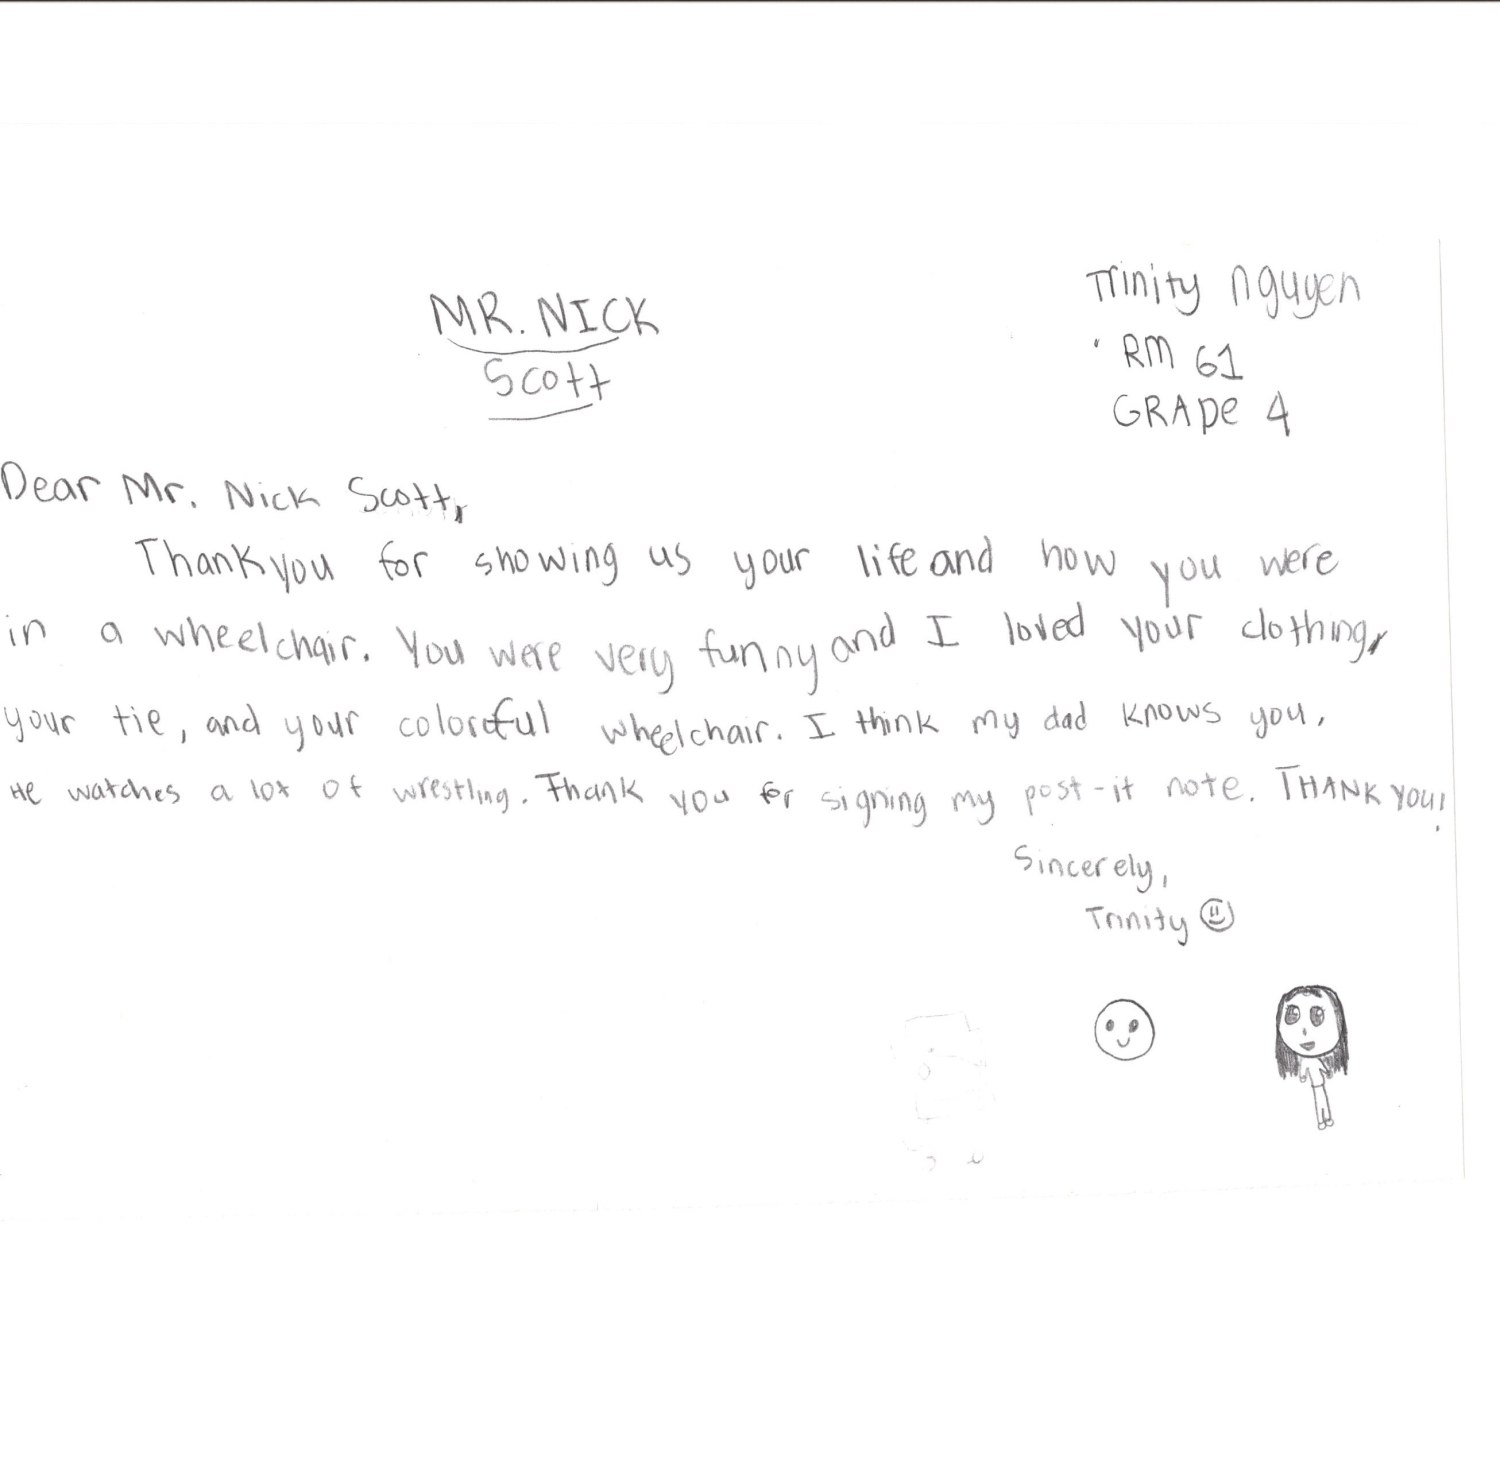 MR. NICK
Scott
Trinity Nguyen
RM 61
GRADE 4
Dear Mr. Nick Scott,
Thank you for showing us your life and how you were
in a wheelchair. You were very funny and I loved your clothing,
your tie, and your colorful wheelchair. I think my dad knows you.
He watches a lot of wrestling. Thank you for signing my post-it note. THANK YOU!
Sincerely,
Trinity